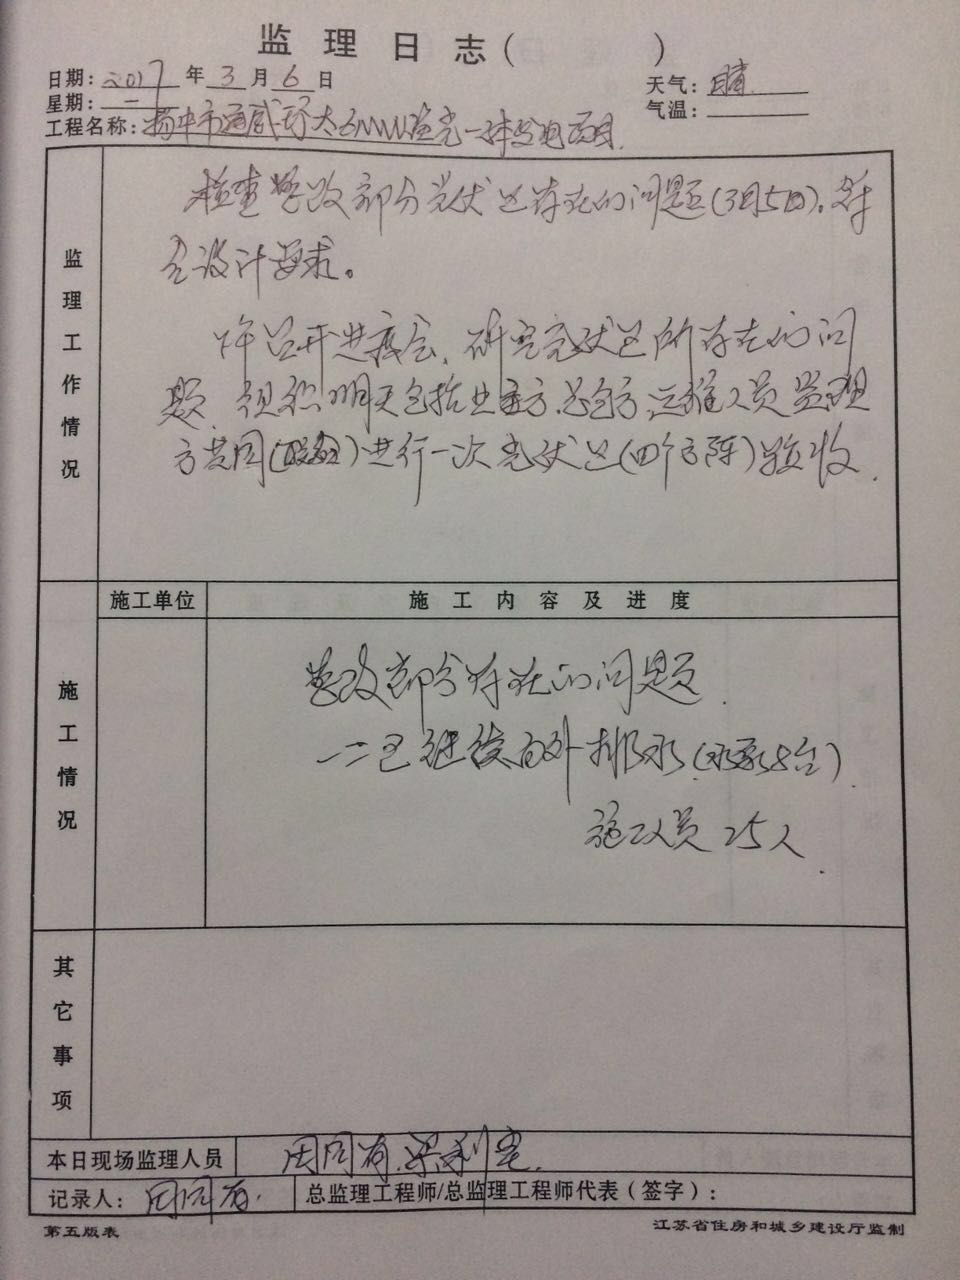 监理日志(        )
日期: 2017 年 3 月 6 日
天气: 晴
星期: 一
气温:
工程名称: 扬中市通威 渔光一体发电项目.
监理工作情况
检查整改部分光伏区存在的问题(3月5日)。符
合设计要求。
召开进度会, 研究光伏区所存在的问
题, 组织明天包括业主方、总包方、运维人员监理
方共同进行一次光伏区(四个方阵)验收.
施工单位
施工内容及进度
施工情况
整改部分存在的问题.
一二区继续向外排水(水泵8台).
施工人员 25人.
其它事项
本日现场监理人员
周同有.
记录人: 周同有.
总监理工程师/总监理工程师代表(签字):
第五版表
江苏省住房和城乡建设厅监制